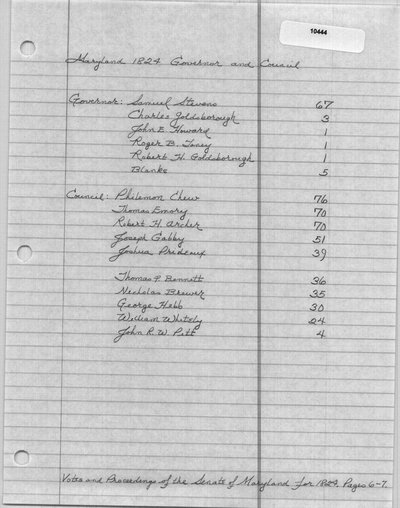 10444
Maryland 1824 Governor and Council
Governor: Samuel Stevens 67
Charles Goldsborough 3
John E. Howard 1
Roger B. Taney 1
Robert H. Goldsborough 1
Blanks 5
Council: Philemon Chew 76
Thomas Emory 70
Robert H. Archer 70
Joseph Gabby 51
Joshua Prideaux 39
Thomas P. Bennett 36
Nicholas Brewer 35
George Hebb 30
William Whitely 24
John R. W. Pitt 4
Votes and Proceedings of the Senate of Maryland for 1824. Pages 6-7.